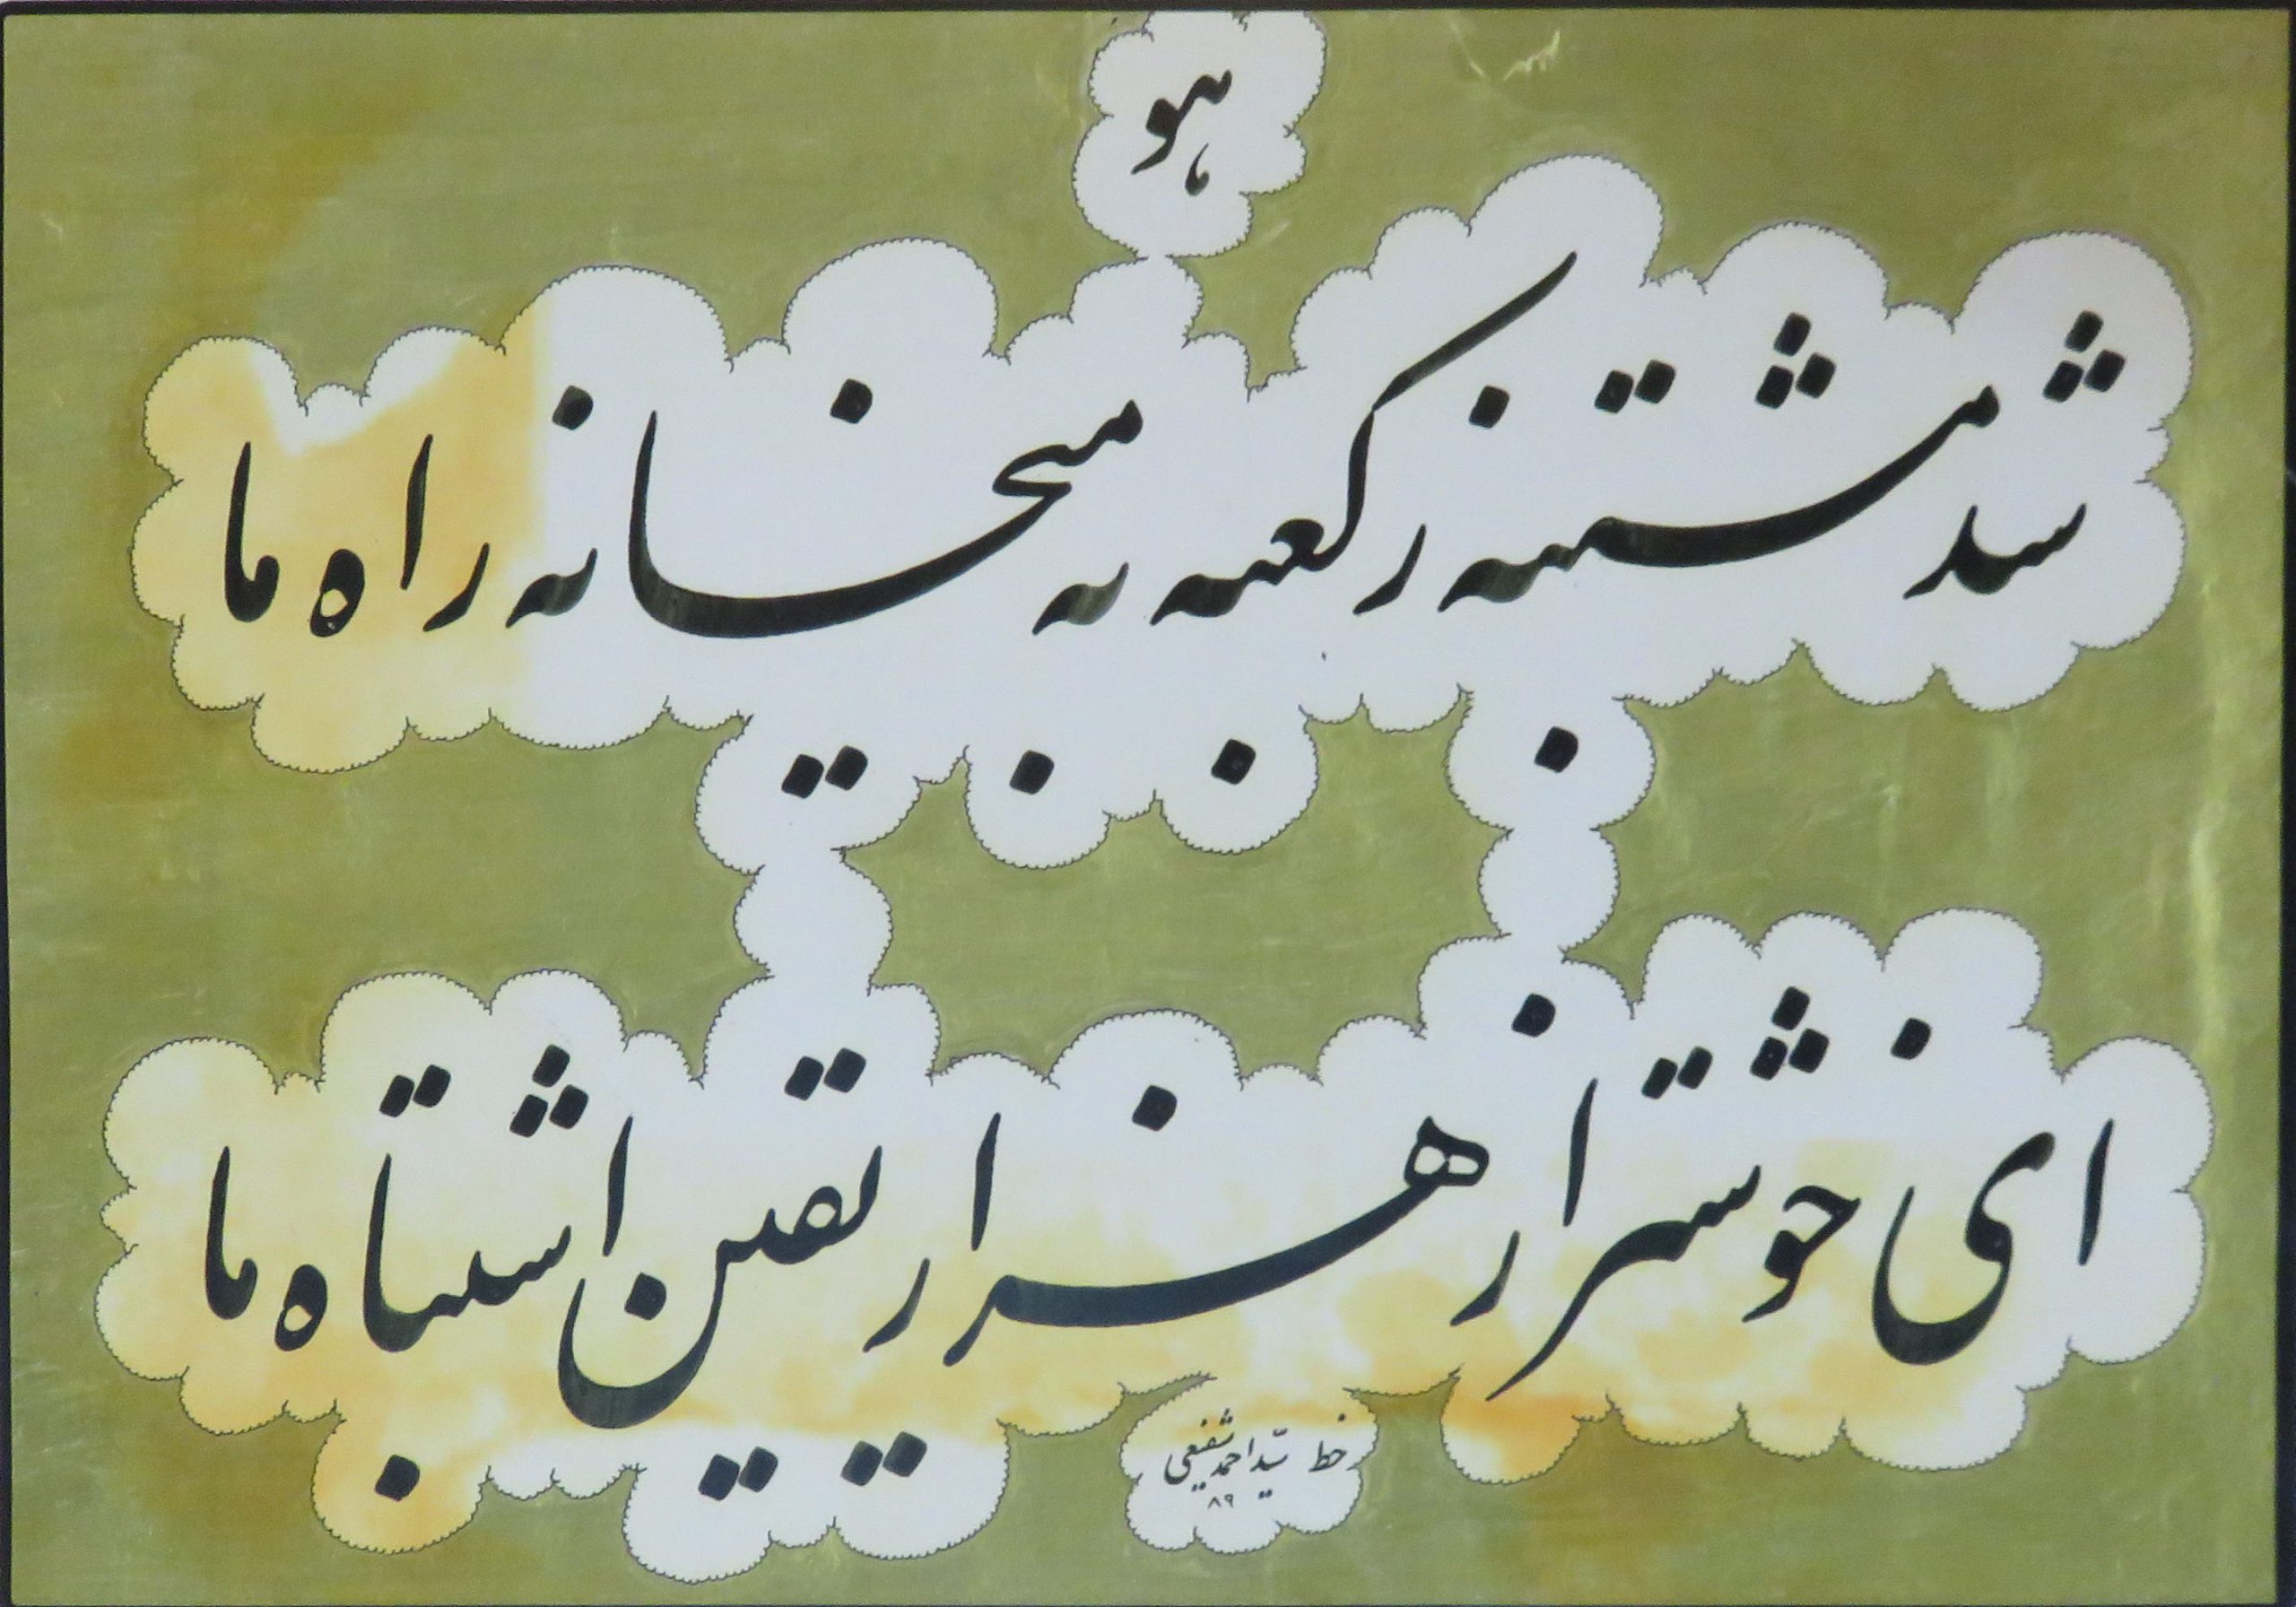 هو
شد مشتبه ز کعبه به میخانه راه ما
ای خوشتر از هزار یقین اشتباه ما
خط سیّد احمد شفیعی
۸۹